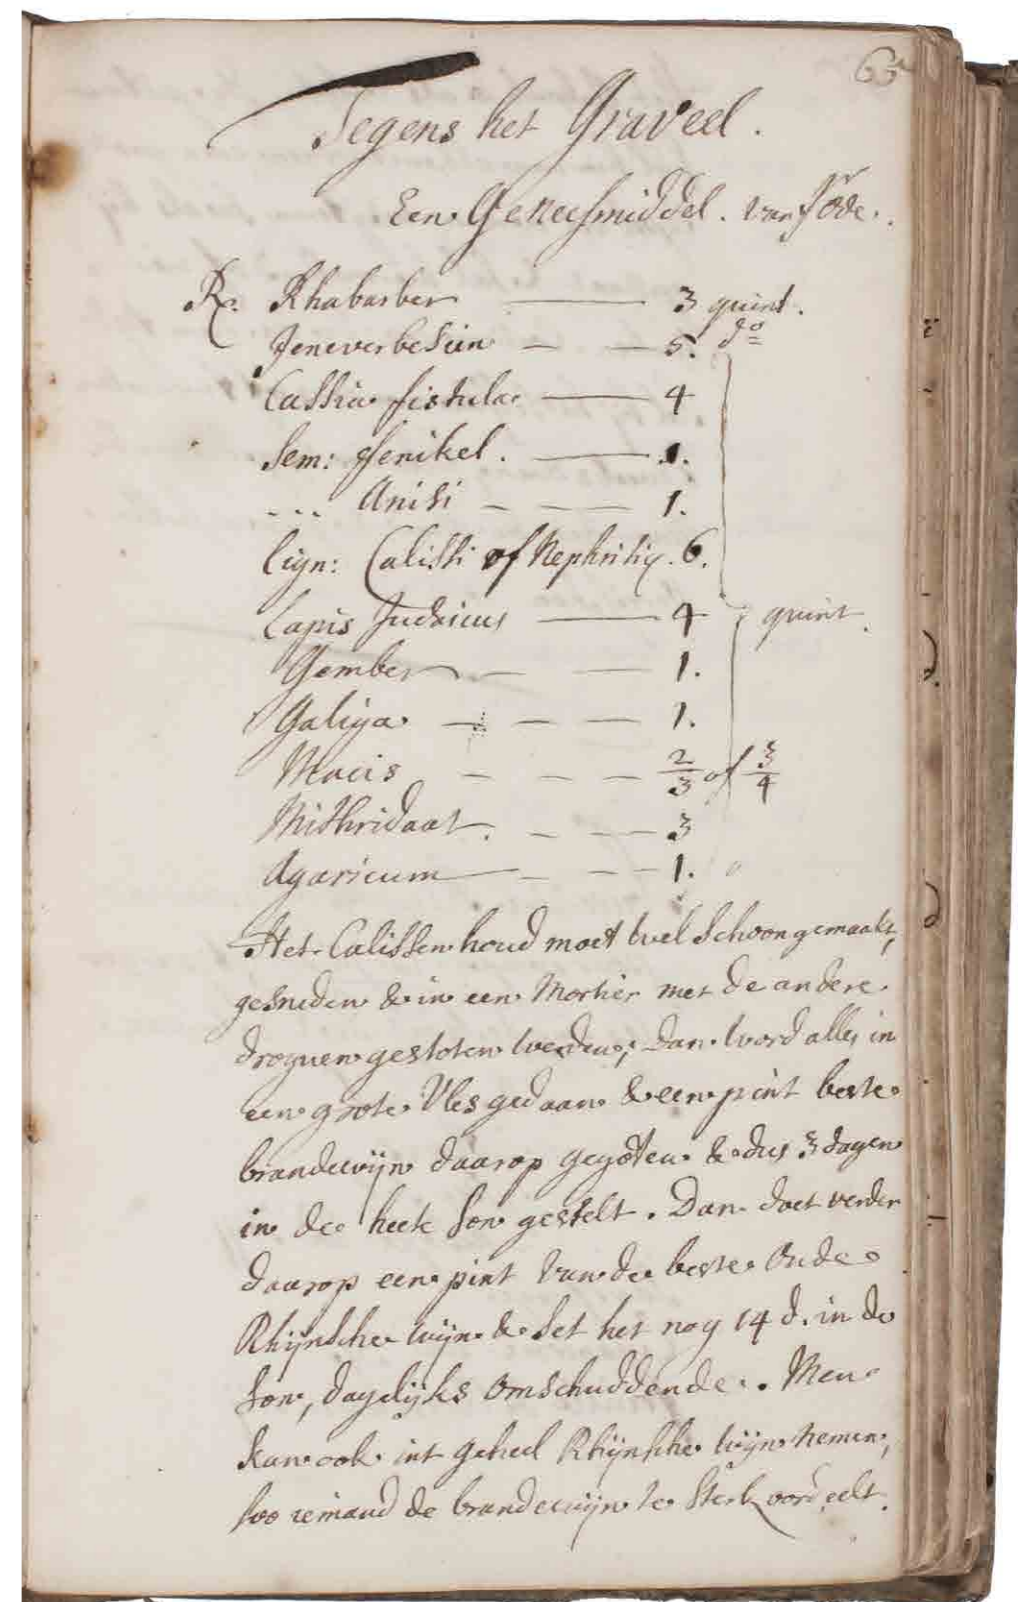 65
Tegens het Graveel.
Een Geneesmiddel. van Jr Ode.
Rc. Rhabarber — 3 quint.
Jeneverbesien — — 5. do
Cassia fistula — 4
Sem: ffenikel. — 1.
... Anisi — — — 1.
Lign: Calissi of Nephritiq. 6.
Lapis Judaicus — 4 quint.
Gember — — 1.
Galiga — — — 1.
Macis — — — 2/3 of 3/4
Mithridaat. — — 3
Agaricum — — — 1.
Het Calissen houd moet wel schoon gemaakt,
gesneden & in een Mortier met de andere
droguen gestoten werden, dan word alles in
een grote Vles gedaan & een pint beste
brandewijn daarop gegoten & dus 3 dagen
in de heete son gestelt. Dan doet verder
daarop een pint van de beste Oude
Rhijnsche wijn & set het nog 14 d. in de
son, dagelijks omschuddende. Men
kan ook int geheel Rhijnsche wijn nemen,
soo iemand de brandewijn te sterk oordeelt.